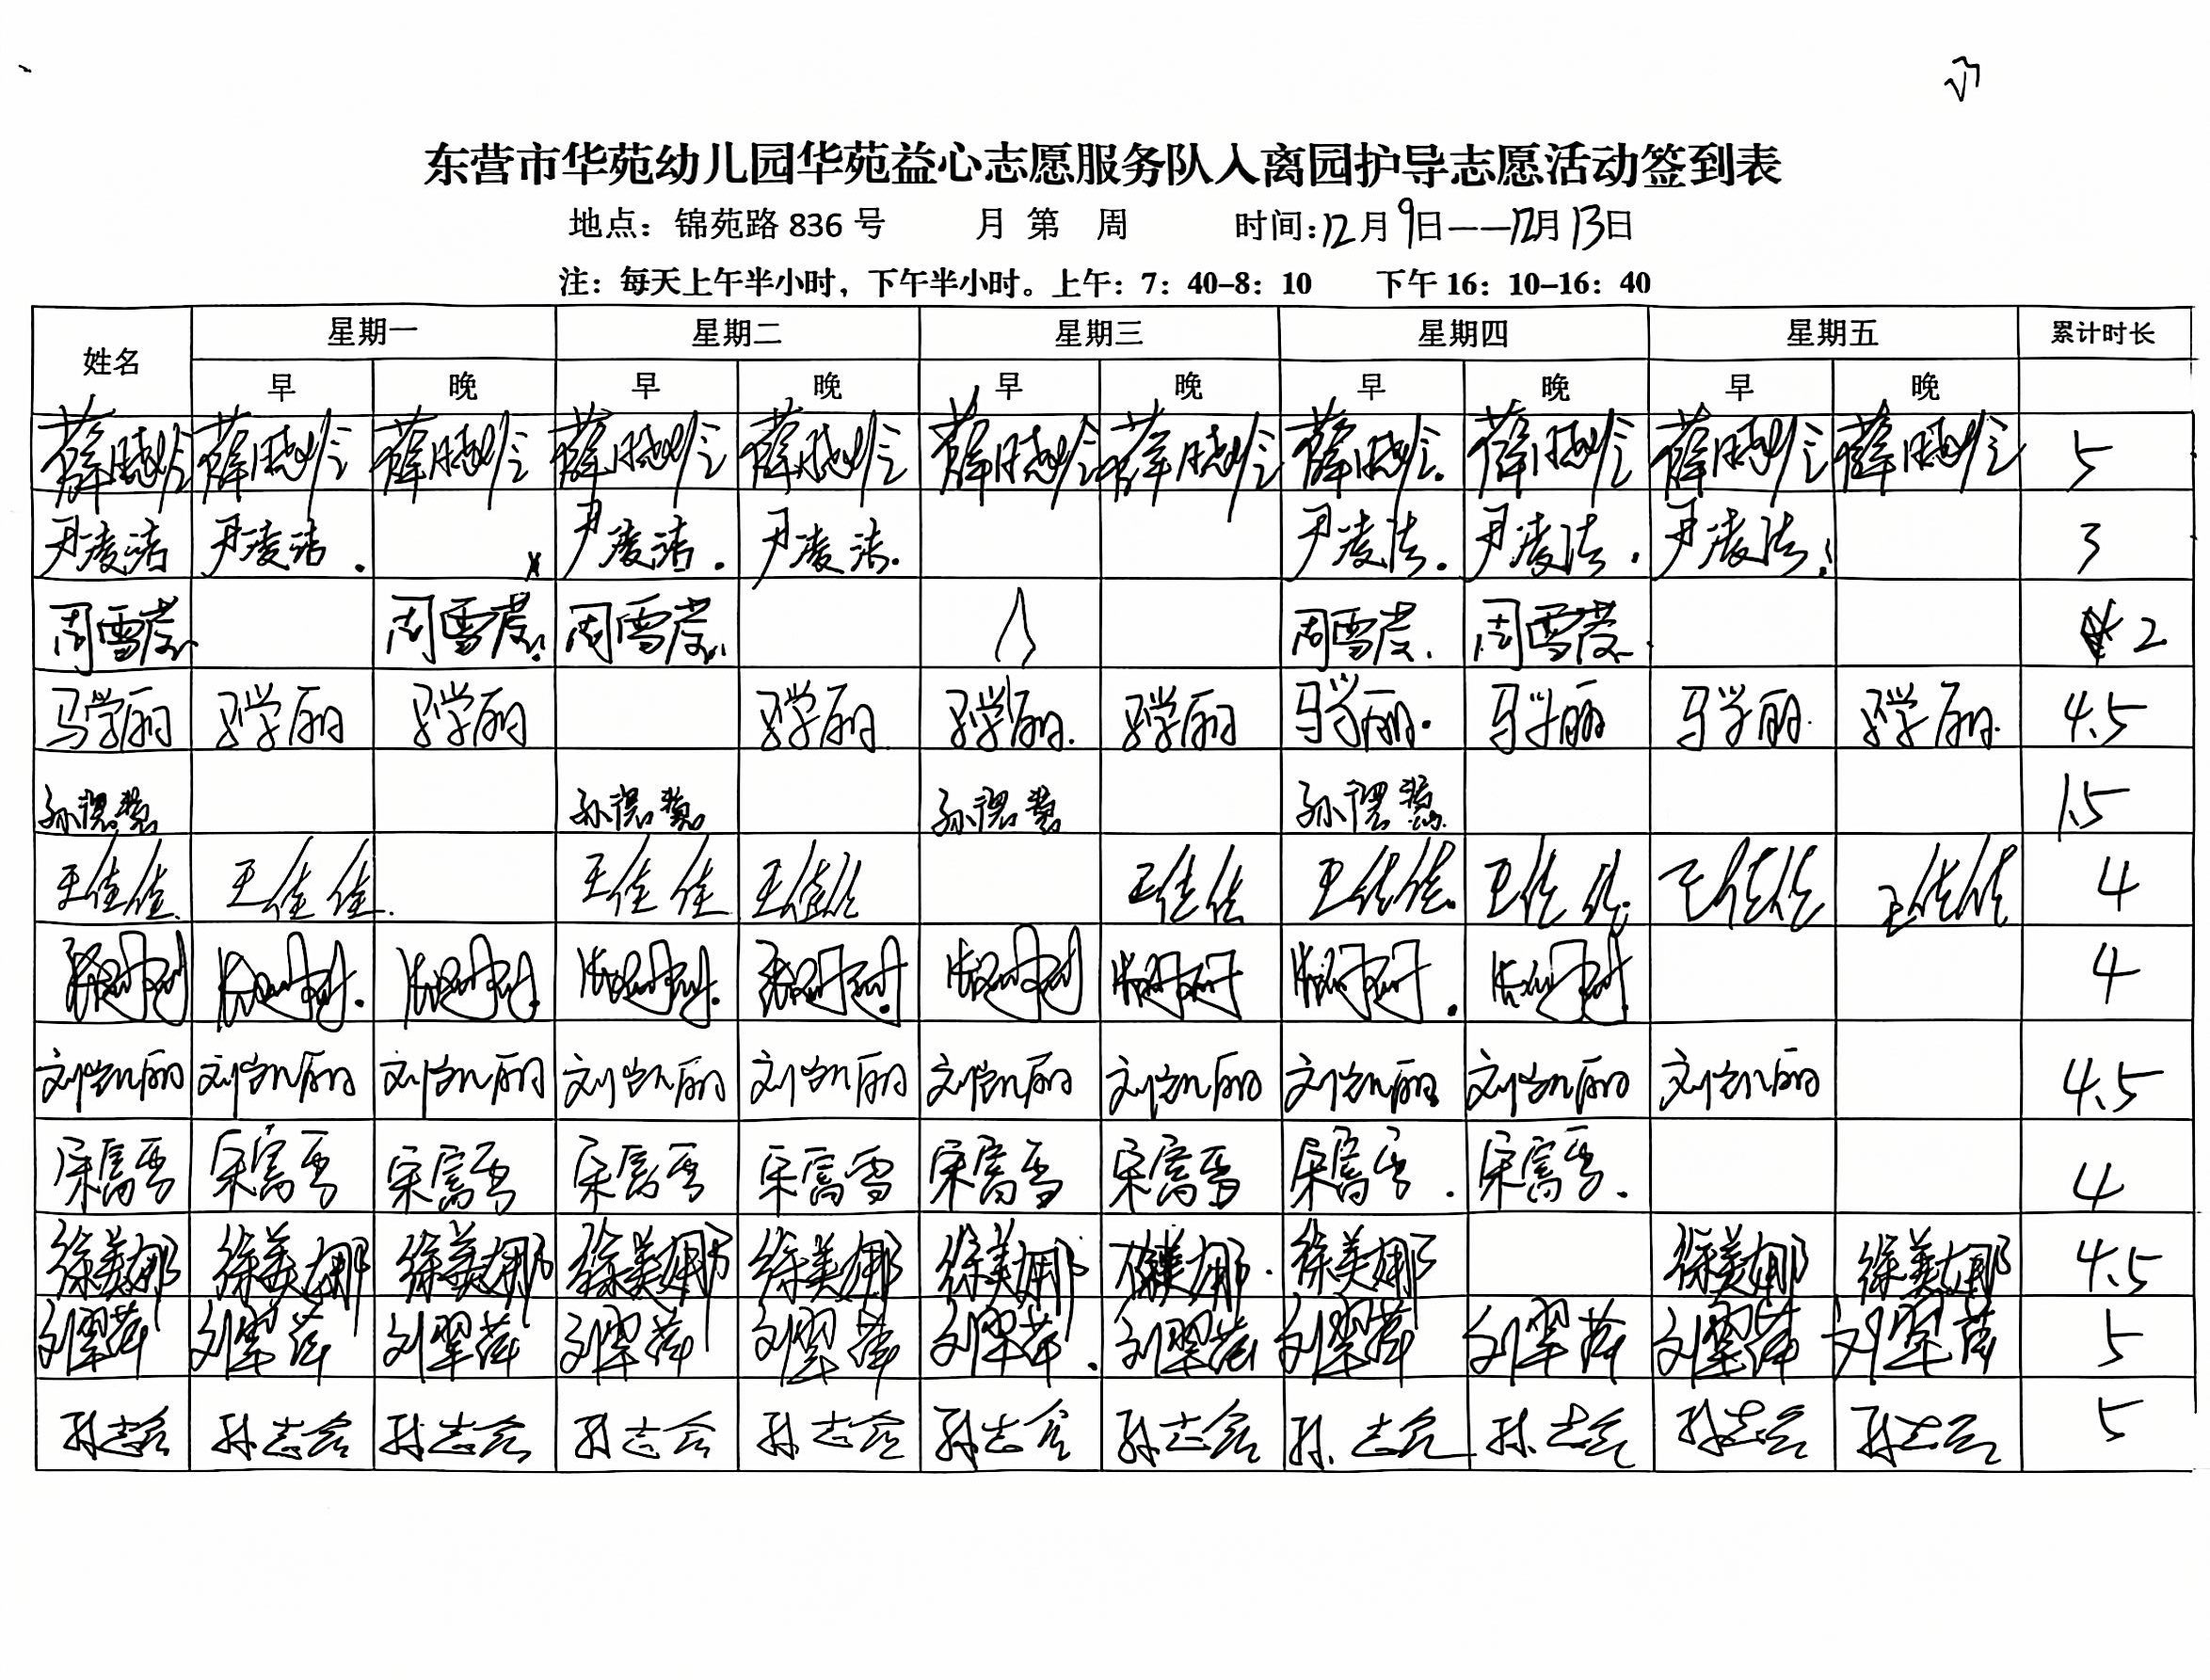 东营市华苑幼儿园华苑益心志愿服务队入离园护导志愿活动签到表
地点：锦苑路 836 号 月 第 周 时间：12月9日——12月13日
注：每天上午半小时，下午半小时。上午：7：40–8：10 下午 16：10–16：40
姓名 星期一 星期二 星期三 星期四 星期五 累计时长
早 晚 早 晚 早 晚 早 晚 早 晚
薛晓伶 薛晓伶 薛晓伶 薛晓伶 薛晓伶 薛晓伶 薛晓伶 薛晓伶 薛晓伶 薛晓伶 薛晓伶 5
尹凌洁 尹凌洁 尹凌洁 尹凌洁 尹凌洁 尹凌洁 尹凌洁 3
周雪 周雪 周雪 周雪 周雪 2
马学丽 马学丽 马学丽 马学丽 马学丽 马学丽 马学丽 马学丽 马学丽 马学丽 4.5
孙 慧 孙 慧 孙 慧 孙 慧 1.5
王佳佳 王佳佳 王佳佳 王佳佳 王佳佳 王佳佳 王佳佳 王佳佳 王佳佳 4
4
刘凯丽 刘凯丽 刘凯丽 刘凯丽 刘凯丽 刘凯丽 刘凯丽 刘凯丽 刘凯丽 刘凯丽 4.5
宋富雪 宋富雪 宋富雪 宋富雪 宋富雪 宋富雪 宋富雪 宋富雪 宋富雪 4
徐美娜 徐美娜 徐美娜 徐美娜 徐美娜 徐美娜 徐美娜 徐美娜 徐美娜 徐美娜 4.5
刘翠萍 刘翠萍 刘翠萍 刘翠萍 刘翠萍 刘翠萍 刘翠萍 刘翠萍 刘翠萍 刘翠萍 刘翠萍 5
孙志会 孙志会 孙志会 孙志会 孙志会 孙志会 孙志会 孙志会 孙志会 孙志会 孙志会 5